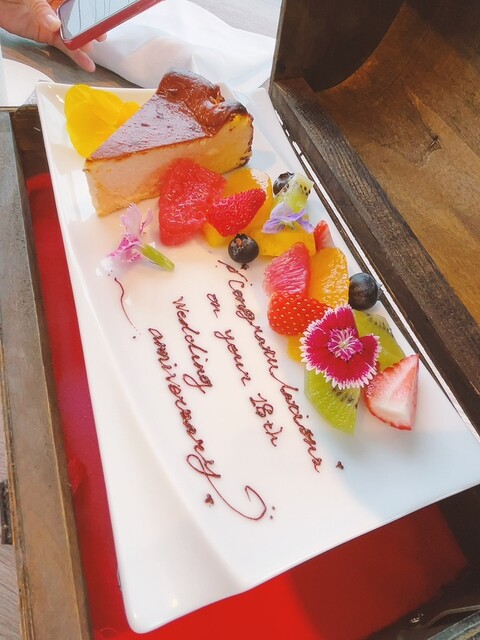 Congratulations
on your 18th
Wedding
anniversary